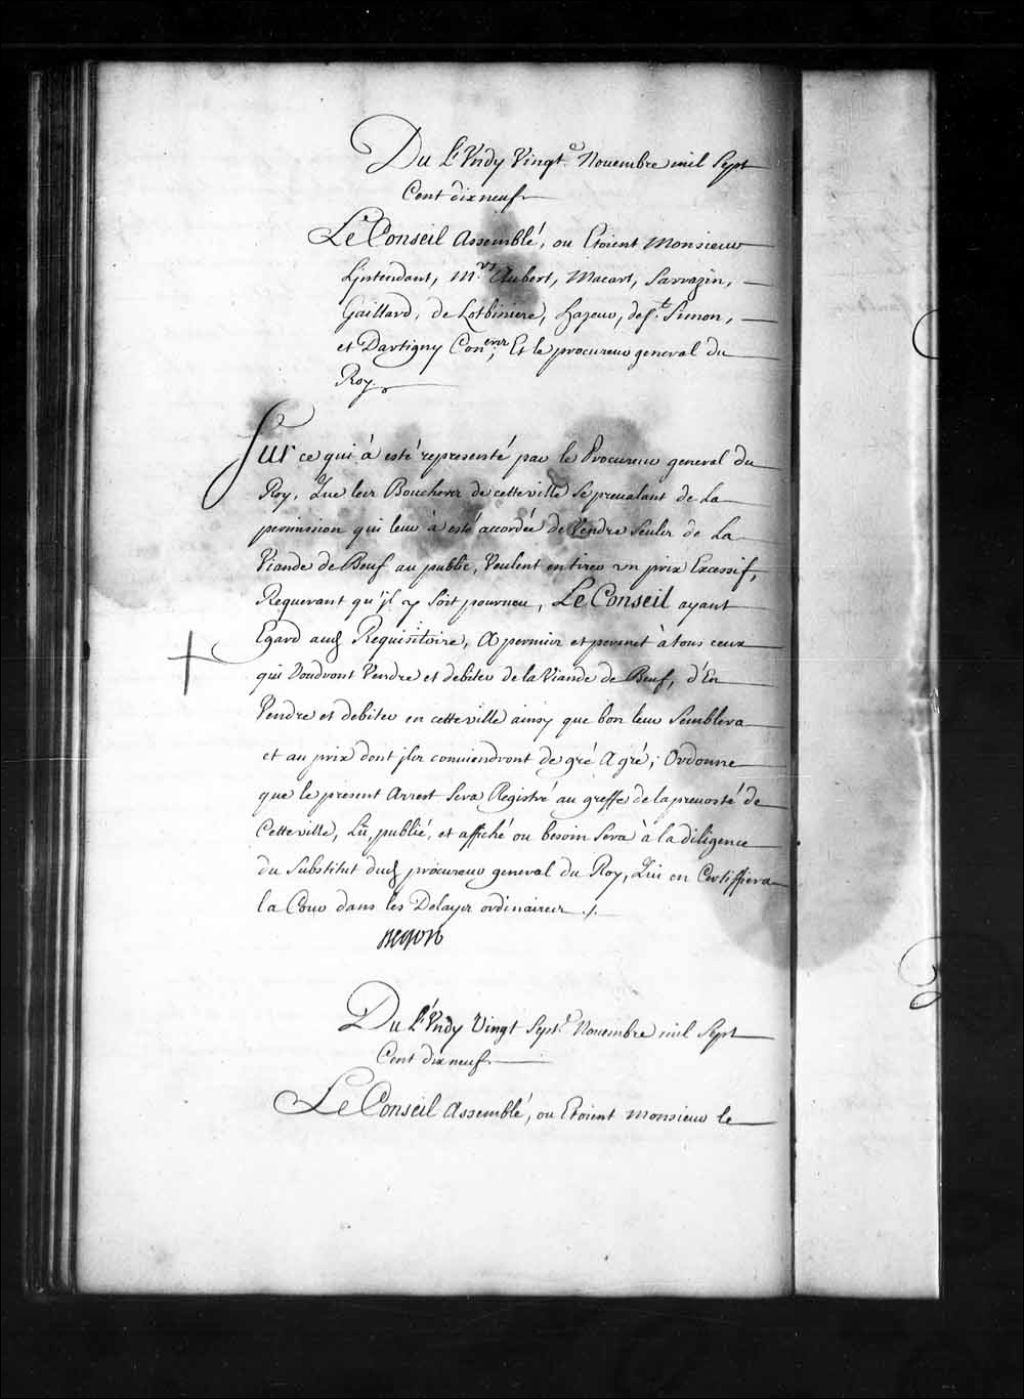 Du L'Undy Vingt.e Novembre mil Sept
Cent dix neuf
Le Conseil Assemblé, ou Etoient Monsieur
Lintendant, M.rs Aubert, Macart, Sarrazin,
Gaillard, de Lotbiniere, hazeur, de S.t Simon,
et Dartigny Con.ers, Et le procureur general du
Roy.
Sur ce qui à esté representé par le Procureur general du
Roy, Que les Bouchers de cette ville se prevalant de La
permission qui leur à esté accordée de Vendre Seuls de La
Viande de Beuf au public, Veulent en tirer un prix Excessif,
Requerant qu'jl y soit pourveu, Le Conseil ayant
Egard aud. Requisitoire, A permis et permet à tous ceux
qui Voudront Vendre et debiter de la Viande de Beuf, d'En
Vendre et debiter en cette ville ainsy que bon leur Semblera
et au prix dont jls conviendront de gré A gré; Ordonne
que le present Arrest Sera Registré au greffe de la prevosté de
Cette ville, Lû, publié, et affiché ou besoin Sera à la diligence
du Substitut dud. procureur general du Roy, Qui en Certiffiera
la Cour dans les Delays ordinaires ./.
Begon
Du L'Undy Vingt Sept.e Novembre mil Sept
Cent dix neuf
Le Conseil Assemblé, ou Etoient Monsieur le